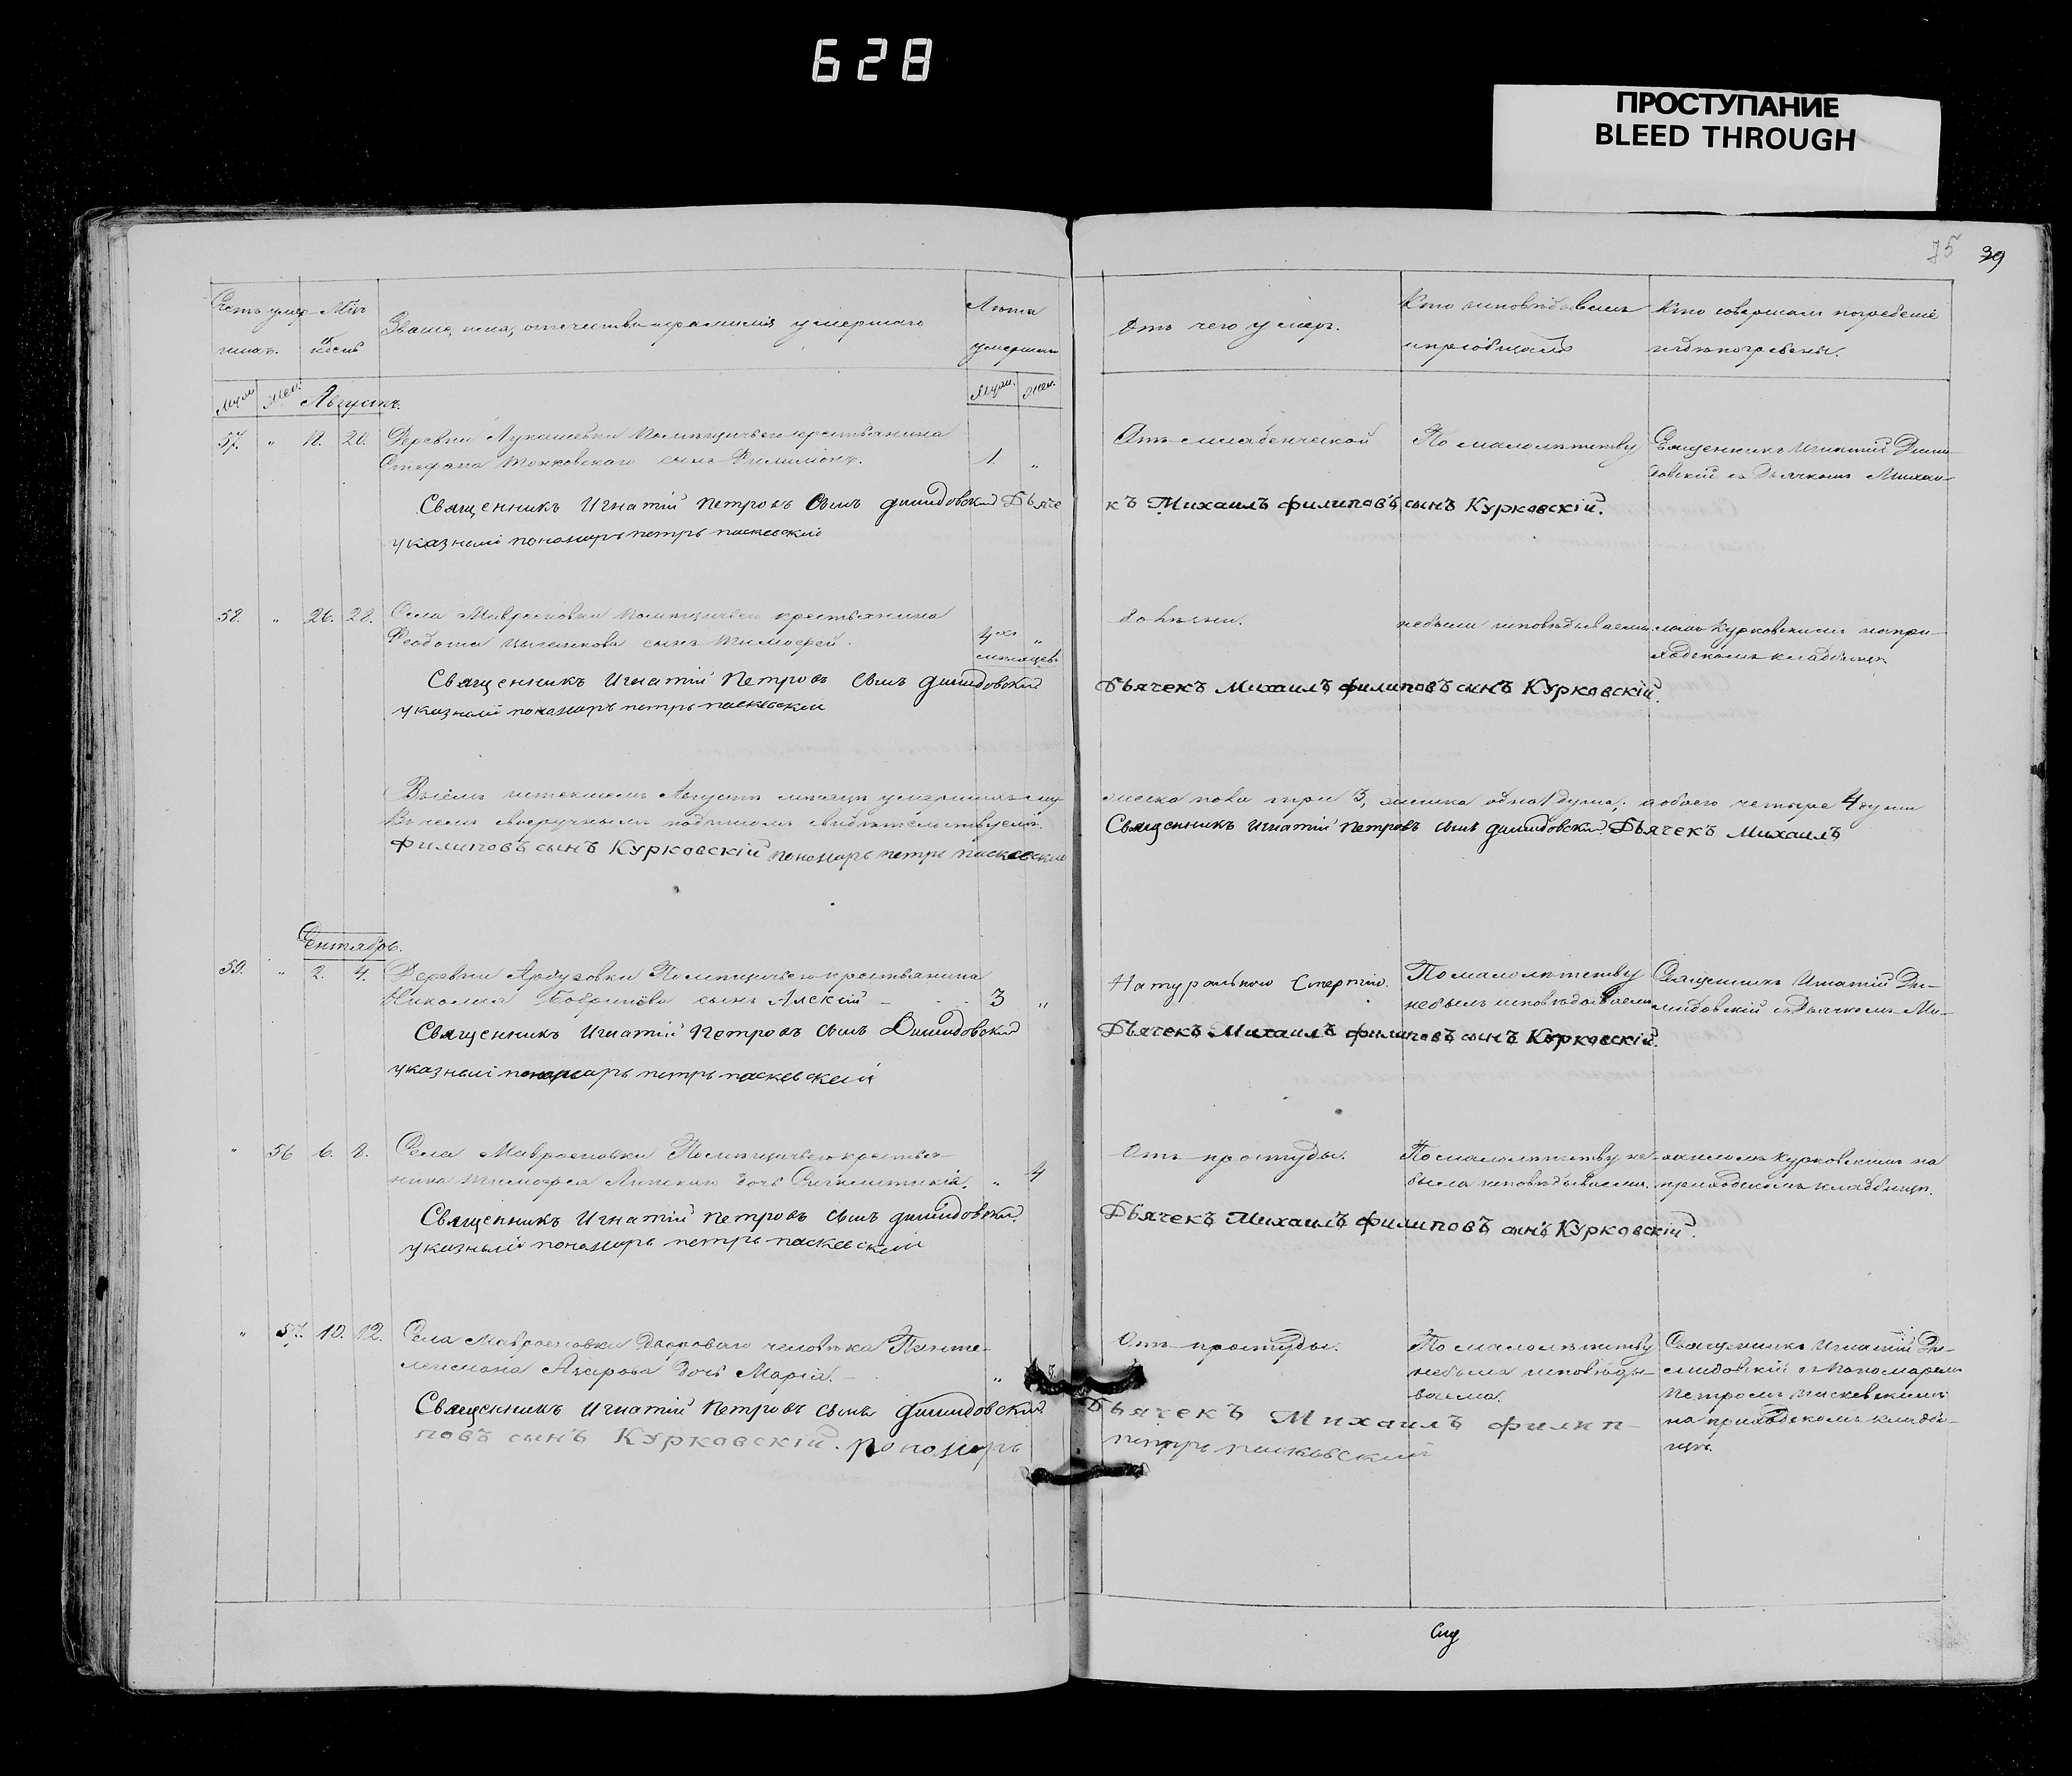 628
ПРОСТУПАНИЕ
BLEED THROUGH
75 39
Счетъ умер- Мѣс.
шихъ. и день
Званіе, имя, отечество и фамилія умершаго
Лѣта
умершаго
Отъ чего умеръ.
Кто исповѣдывалъ
и пріобщалъ
Кто совершалъ погребеніе
и гдѣ погребены.
Муж. Жен. Августъ.
Муж. Жен.
57. " 18. 20. Деревни Лукашевки помѣщичьего крестьянина
Стефана сынъ Филимонъ. 1. "
Отъ младенческой
По малолѣтству
Священникъ Игнатій Дими-
довскій съ Дьячкомъ Михаи-
Священникъ Игнатій Петровъ сынъ Димидовскій Дьяче
къ Михаилъ филиповъ сынъ Курковскій.
указный пономарь петръ паскевский
58. " 26. 28. Села Мавроеновки помѣщичьего крестьянина
Феодота сынъ Тимофей. 4ехъ "
мѣсяцевъ
болѣзни.
небыли исповѣдываемы
ломъ Курковскимъ на при-
ходскомъ кладбищѣ
Священникъ Игнатій Петровъ сынъ Димидовскій
Дьячекъ Михаилъ филиповъ сынъ Курковскій.
указный пономарь петръ паскевский
Въ семъ истекшемъ Августѣ мѣсяцѣ умершихъ му-
жеска пола три 3, женска одна 1 душа; а обоего четыре 4 души
Въ чемъ своеручнымъ подписомъ свидѣтельствуемъ.
Священникъ Игнатій Петровъ сынъ Димидовскій. Дьячекъ Михаилъ
филиповъ сынъ Курковскій пономарь петръ паскевский
Сентябрь.
59. " 2. 4. Деревни Арбузовки Помѣщичьего крестьянина
Николая сынъ Алексій - 3 "
Натуральною Смертію.
По малолѣтству
небылъ исповѣдываемъ
Священникъ Игнатій Ди-
мидовскій съ Дьячкомъ Ми-
Священникъ Игнатій Петровъ сынъ Димидовскій
Дьячекъ Михаилъ филиповъ сынъ Курковскій.
указный пономарь петръ паскевский
" 56 6. 8. Села Мавроеновки Помѣщичьего крестья-
нина Тимофея дочь " 4
Отъ простуды.
По малолѣтству не
была исповѣдываема.
хаиломъ Курковскимъ на
приходскомъ кладбищѣ.
Священникъ Игнатій Петровъ сынъ Димидовскій.
Дьячекъ Михаилъ филиповъ сынъ Курковскій.
указный пономарь петръ паскевский
" 57. 10. 12. Села Мавроеновки Двороваго человѣка Панте-
леимона Азарова дочь Марія. - "
Отъ простуды.
По малолѣтству
небыла исповѣды-
ваема.
Священникъ Игнатій Ди-
мидовскій съ пономаремъ
Петромъ паскевскимъ
на приходскомъ кладби-
щѣ.
Священникъ Игнатій Петровъ сынъ Димидовскій.
Дьячекъ Михаилъ филип-
повъ сынъ Курковскій. пономарь
петръ паскевский